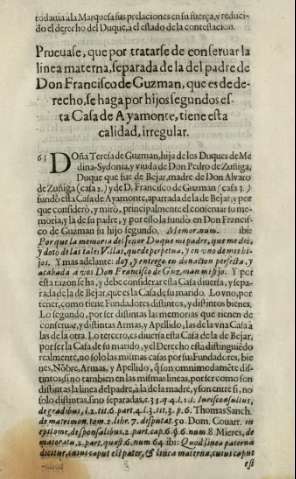 todauia a la Marquesa sus prelaciones en su fuerça, y reduci-
do el derecho del Duque, a el estado de la contestacion.
Prueuase, que por tratarse de conseruar la
linea materna, separada de la del padre de
Don Francisco de Guzman, que es de de-
recho, se haga por hijos segundos es-
ta Casa de Ayamonte, tiene esta
calidad, irregular.
63 Doña Teresa de Guzman, hija de los Duques de Me
dina-Sydonia, y viuda de Don Pedro de Zuñiga,
Duque que fue de Bejar, madre de Don Aluaro
de Zuñiga (casa 2.) y de D. Francisco de Guzman (casa 3.)
fundò esta Casa de Ayamonte, apartada de la de Bejar, y por
que considerò, y mirò, principalmente el conseruar su me-
moria, y la de su padre, y por esso la fundò en Don Francis-
co de Guzman su hijo segundo. Memor. num. ibi:
Porque la memoria del señor Duque mi padre, que me diò,
y dotò de las tales Villas, quede perpetua, y en vno de mis hi-
jos. Y mas adelante: doy, y entrego en donacion perfecta, y
acabada a vos Don Francisco de Guzman mi hijo. Y por
esta razon se ha, y debe considerar esta Casa diuersa, y sepa-
rada de la de Bejar, que es la Casa de su marido. Lo vno, por
tener, como tiene Fundadores distintos, y distintos bienes.
Lo segundo, por ser distintas las memorias que tienen de
conseruar, y distintas Armas, y Apellido, las de la vna Casa à
las de la otra. Lo tercero, es diuersa esta Casa de la de Bejar,
por ser la Casa de su mando, y el Derecho esta distinguiēdo
realmente, no solo las mismas casas por sus Fundadores, bie
nes, Nõbre, Armas, y Apellido, q̃ son omnimodamēte dis-
tintos, sino tambien en las mismas lineas, por ser como son
distintas la linea de padre, a la de la madre, y son entre si, no
solo distintas, sino separadas,
de gradibus, Thomas Sanch.
de matrimon. tom. 2. lib. 7. disputat. 50. Dom. Couar. in
epitome, de sponsalibus, 2. part. cap. 6. §. 6. num. 8. Mieres, de
maioratu, 2. part. quæst. 6. num. 64 ibi: Quod linea paterna
dicitur, cuius caput est pater, & linea materna, cuius caput
est